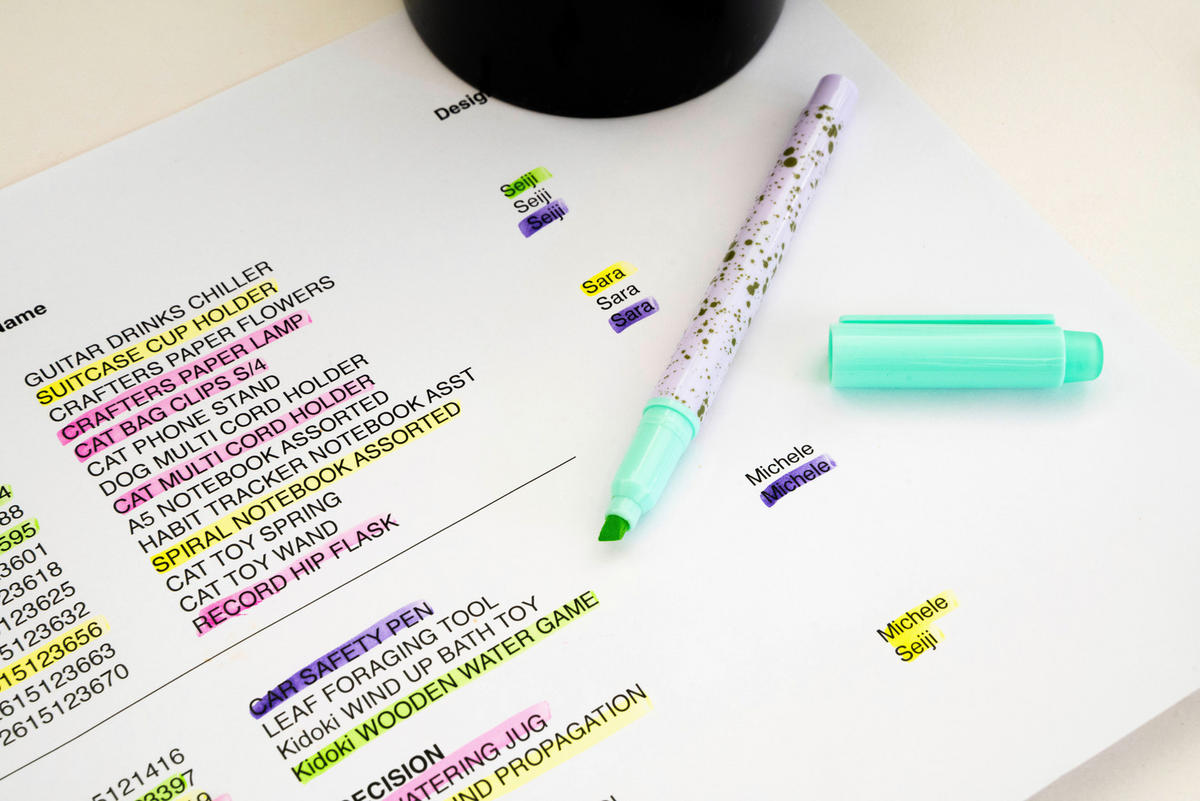 Design
Seiji
Seiji
Seiji
Sara
Sara
Sara
Michele
Michele
Michele
Seiji
Name
GUITAR DRINKS CHILLER
SUITCASE CUP HOLDER
CRAFTERS PAPER FLOWERS
CRAFTERS PAPER LAMP
CAT BAG CLIPS S/4
CAT PHONE STAND
DOG MULTI CORD HOLDER
CAT MULTI CORD HOLDER
A5 NOTEBOOK ASSORTED
HABIT TRACKER NOTEBOOK ASST
SPIRAL NOTEBOOK ASSORTED
CAT TOY SPRING
CAT TOY WAND
RECORD HIP FLASK
4
88
595
3601
3618
123625
5123632
15123656
2615123663
2615123670
CAR SAFETY PEN
LEAF FORAGING TOOL
Kidoki WIND UP BATH TOY
Kidoki WOODEN WATER GAME
ECISION
WATERING JUG
ND PROPAGATION
5121416
3397